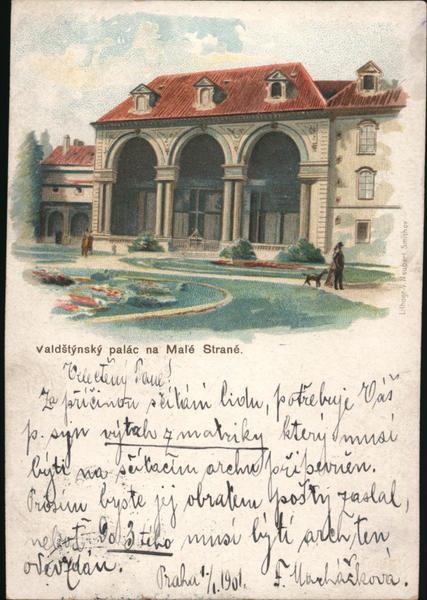 Valdštýnský palác na Malé Straně.
Lithogr. J. Neubert, Smíchov
Velectěný Pane!
Za příčinou sčítání lidu, potřebuje Váš
p. syn výtah z matriky který musí
býti na sčítacím archu připevněn.
Prosím byste jej obratem pošty zaslal,
neboť do 3tího musí býti arch ten
odevzdán.
Praha 1/1. 1901. F. Macháčková.